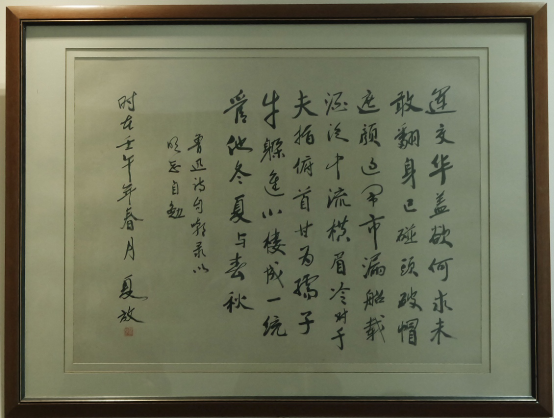 運交华盖欲何求未
敢翻身已碰頭破帽
遮颜过闹市漏船载
酒泛中流横眉冷对千
夫指俯首甘为孺子
牛躲進小楼成一统
管他冬夏与春秋
鲁迅诗句敬录以
明志自勉
时在壬午年春月 夏放